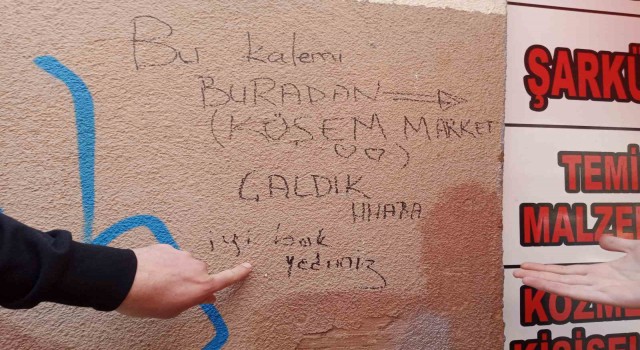 Bu kalemi
BURADAN
(KÖŞEM MARKET
)
ÇALDIK
iyi bok
yediniz
ŞARKÜ
TEMİ
MALZE
KOZME
KİŞİSEL